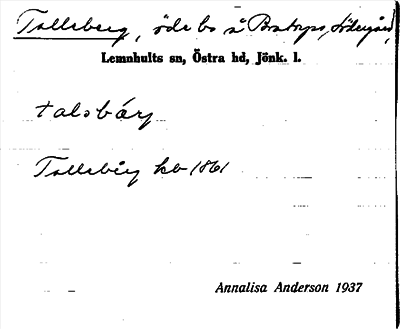 Tallsberg, öde bs å Boatorps, Södergård,
Lemnhults sn, Östra hd, Jönk. l.
talsbárj
Tallsberg kb 1861
Annalisa Anderson 1937